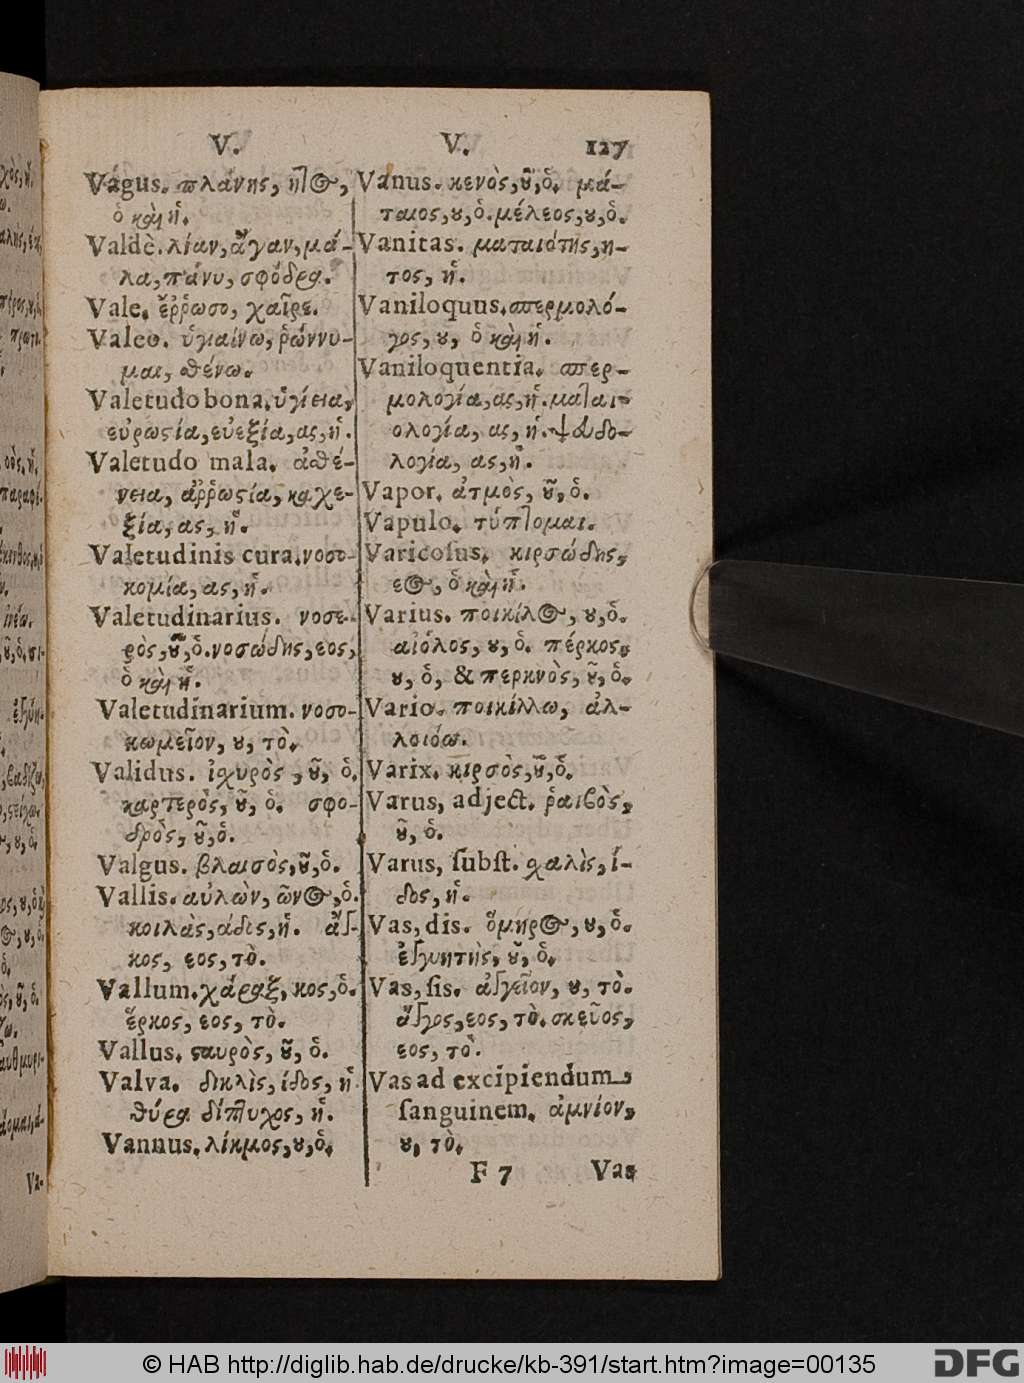 V.
Vagus. πλάνης, ητος,
ὁ καὶ ἡ.
Valdè. λίαν, ἄγαν, μά-
λα, πάνυ, σφόδρα.
Vale. ἔῤῥωσο, χαῖρε.
Valeo. ὑγιαίνω, ῥώννυ-
μαι, σθένω.
Valetudo bona. ὑγίεια,
εὐρωστία, εὐεξία, ας, ἡ.
Valetudo mala. ἀσθέ-
νεια, ἀῤῥωστία, καχε-
ξία, ας, ἡ.
Valetudinis cura. νοσο-
κομία, ας, ἡ.
Valetudinarius. νοσε-
ρὸς, οῦ, ὁ. νοσώδης, εος,
ὁ καὶ ἡ.
Valetudinarium. νοσο-
κωμεῖον, ου, τὸ.
Validus. ἰσχυρὸς, οῦ, ὁ.
καρτερὸς, οῦ, ὁ. σφο-
δρὸς, οῦ, ὁ.
Valgus. βλαισὸς, οῦ, ὁ.
Vallis. αὐλὼν, ῶνος, ὁ.
κοιλὰς, άδος, ἡ. ἄγ-
κος, εος, τὸ.
Vallum. χάραξ, κος, ὁ.
ἕρκος, εος, τὸ.
Vallus. σταυρὸς, οῦ, ὁ.
Valva. δικλὶς, ίδος, ἡ
θύρα δίπτυχος, ἡ.
Vannus. λίκμος, ου, ὁ.
V. 127
Vanus. κενὸς, οῦ, ὁ. μά-
ταιος, ου, ὁ. μέλεος, ου, ὁ.
Vanitas. ματαιότης, η-
τος, ἡ.
Vaniloquus. σπερμολό-
γος, ου, ὁ καὶ ἡ.
Vaniloquentia. σπερ-
μολογία, ας, ἡ. μαται-
ολογία, ας, ἡ. ψευδο-
λογία, ας, ἡ.
Vapor. ἀτμὸς, οῦ, ὁ.
Vapulo. τύπτομαι.
Varicosus. κιρσώδης,
εος, ὁ καὶ ἡ.
Varius. ποικίλος, ου, ὁ.
αἰόλος, ου, ὁ. πέρκος,
ου, ὁ, & περκνὸς, οῦ, ὁ.
Vario. ποικίλλω, ἀλ-
λοιόω.
Varix. κιρσὸς, οῦ, ὁ.
Varus, adject. ῥαιβὸς,
οῦ, ὁ.
Varus, subst. χαλὶς, ί-
δος, ἡ.
Vas, dis. ὅμηρος, ου, ὁ.
ἐγγυητὴς, οῦ, ὁ.
Vas, sis. ἀγγεῖον, ου, τὸ.
ἄγγος, εος, τὸ. σκεῦος,
εος, τὸ.
Vas ad excipiendum
sanguinem. ἀμνίον,
ου, τὸ.
F 7 Vas
© HAB http://diglib.hab.de/drucke/kb-391/start.htm?image=00135
DFG